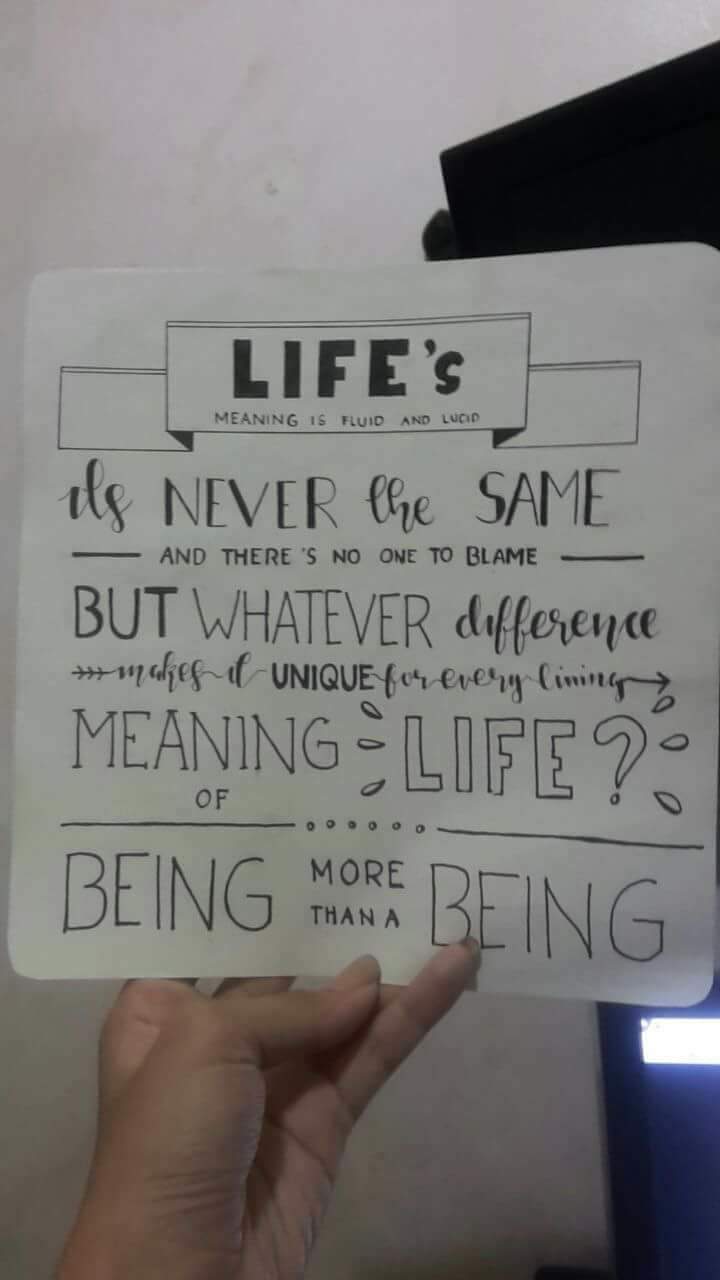 LIFE's
MEANING IS FLUID AND LUCID
its NEVER the SAME
AND THERE'S NO ONE TO BLAME
BUT WHATEVER difference
makes it UNIQUE for every living
MEANING
OF
LIFE?
BEING MORE THAN A BEING